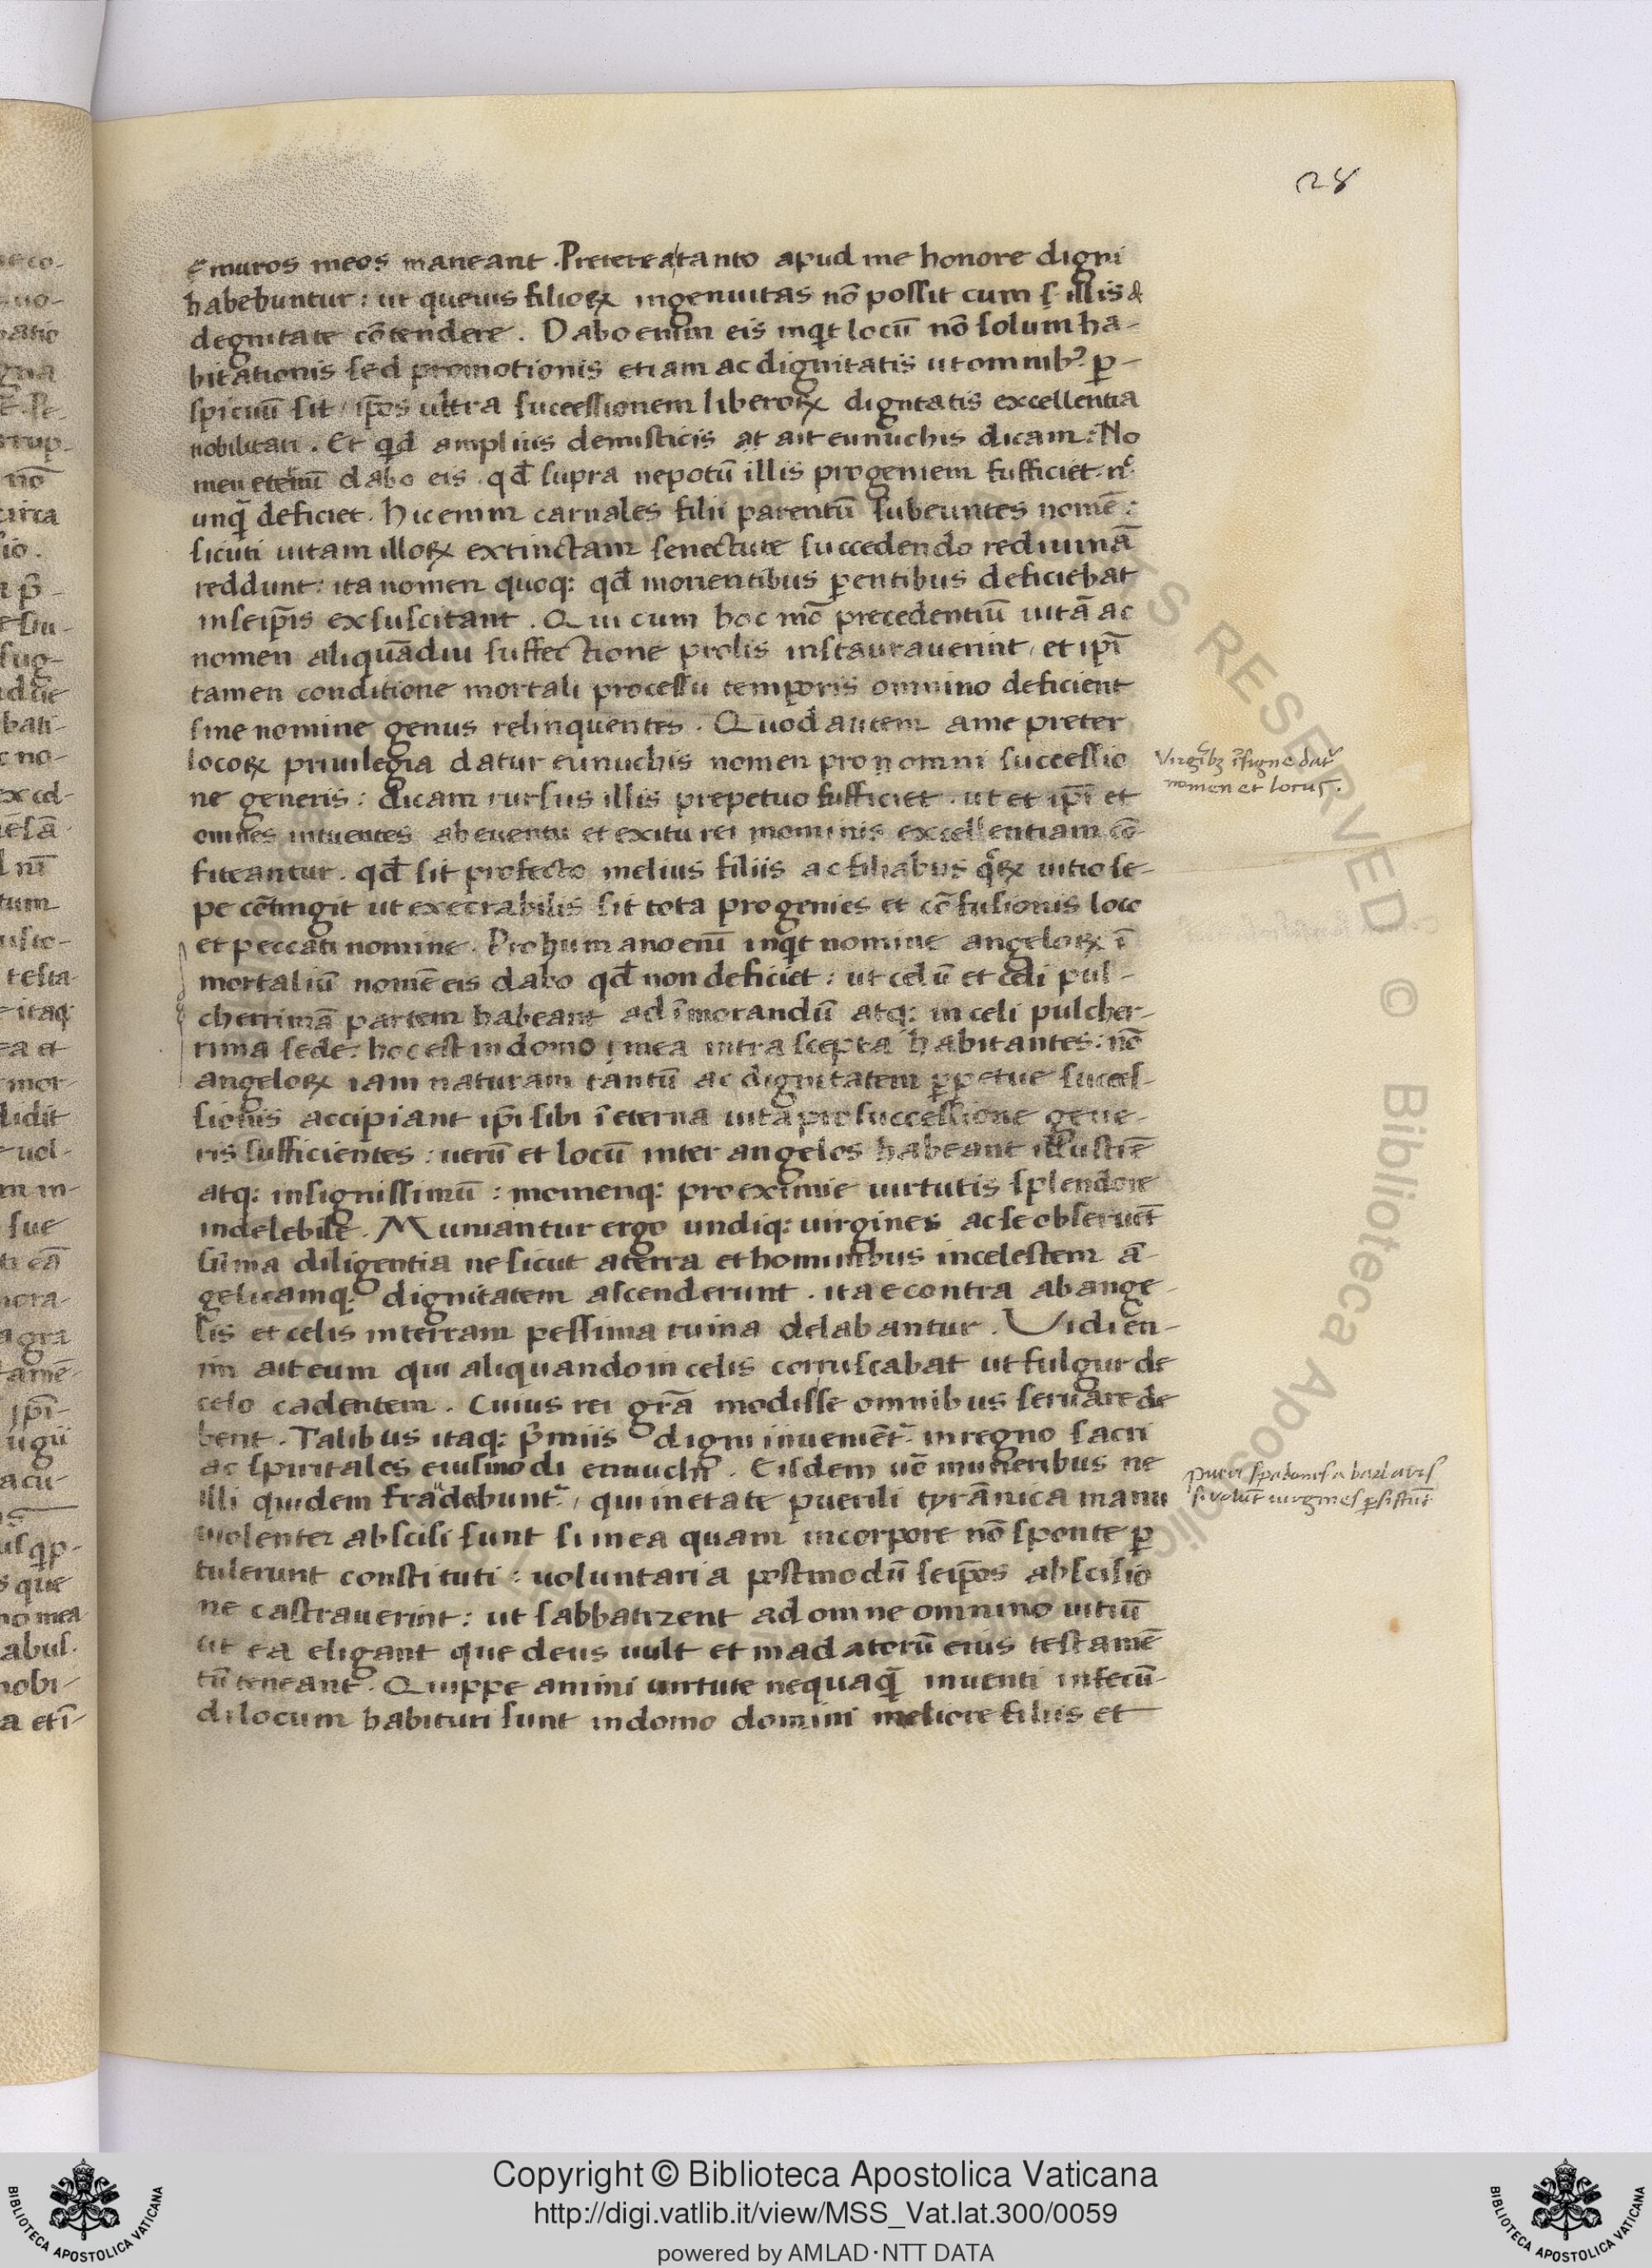 28
e muros meos maneant. Preterea tanto apud me honore digni
habebuntur: ut queuis filioꝝ ingenuitas nō possit cum s illis &
degnitate cōtendere. Dabo enim eis inqͥt locū nō solum ha-
bitationis sed promotionis etiam ac dignitatis ut omnibꝰ. ꝑ-
spicuū sit ip̄os ultra successionem liberoꝝ dignitatis excellentia
nobilitari. Et qͥd amplius demisticis at ait eunuchis dicam: No
men eternū dabo eis. qd̄ supra nepotū illis progeniem sufficiet. nͨ
unqͣ̄ deficiet. Hic enim carnales filii parentū subeuntes nomē:
sicuti uitam illoꝝ extinctam senectute succedendo rediuiuā
reddunt: ita nomen quoq: qd̄ morientibus ꝑentibus deficiebat
in seip̄is exsuscitant. Qui cum hoc mō precedentiū uitā ac
nomen aliquādiu suffectione prolis instaurauerint, et ip̄i
tamen conditione mortali processu temporis omnino deficient
sine nomine genus relinquentes. Quod autem a me preter
locoꝝ priuilegia datur eunuchis nomen pro n omni successio
ne generis: dicam rursus illis prepetuo sufficiet. ut et ip̄i et
omnes intuentes ab euentu et exitu rei mominis excellentiam cō-
fiteantur. qd̄ sit profecto melius filiis ac filiabus qͦꝝ uitio se-
pe cōtingit ut execrabilis sit tota progenies et cōfusionis loco
et peccati nomine. Pro humano enī inqͥt nomine angeloꝝ ī
mortaliū nomē eis dabo qd̄ non deficiet: ut celū et celi pul-
cherrimā partem habeant ad īmorandū atq: in celi pulcher-
rima sede: hoc est in domo mea intra scepta habitantes: nō
angeloꝝ iam naturam tantū ac dignitatem ꝑpetue succes-
sionis accipiant ip̄i sibi ī eterna uita pro successione gene-
ris sufficientes: uerū et locū inter angelos habeant illustrē
atq: insignissimū: momenq: pro eximie uirtutis splendore
indelebile. Muniantur ergo undiq: uirgines ac se obseruēt
sūma diligentia ne sicut a terra et hominibus in celestem ā-
gelicamq: dignitatem ascenderunt. ita e contra ab ange-
lis et celis in terram pessima ruina delabantur. Vidi en-
im ait eum qui aliquando in celis corruscabat ut fulgur de
celo cadentem. Cuius rei gr̄a modisse omnibus seruare de
bent. Talibus itaq: p̄miis digni inueniētͬ. in regno sacri
ac spiritales eiusmodi eunuchi. Eisdem uē muneribus ne
illi quidem fradebuntͬ, qui in etate puerili tyrānica manu
uiolenter abscisi sunt si in ea quam in corpore nō sponte ꝑ
tulerunt constituti: uoluntaria postmodū seip̄os abscisio
ne castrauerint: ut sabbatizent ad omne omnino uitiū
ut ea eligant que deus uult et madatorū eius testamē
tū teneant. Quippe animi uirtute nequaqͣ̄ inuenti infecū-
di locum habituri sunt in domo domini meliore filiis et
Virgībꝫ īsigne datͬ
nomen et locus.
pueri spadones a barbaris
si volūt uirgines ꝑsistūt
Copyright © Biblioteca Apostolica Vaticana
http://digi.vatlib.it/view/MSS_Vat.lat.300/0059
powered by AMLAD·NTT DATA
BIBLIOTECA APOSTOLICA VATICANA
BIBLIOTECA APOSTOLICA VATICANA